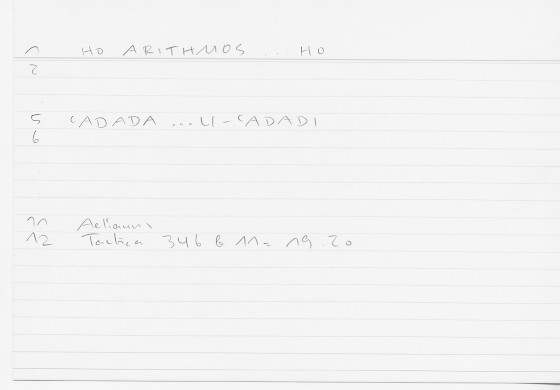 1 HO ARITHMOS ... HO
2
5 ʿADADA ... LI-ʿADADI
6
11 Aelianus
12 Tactica 346 B 11 = 19.20